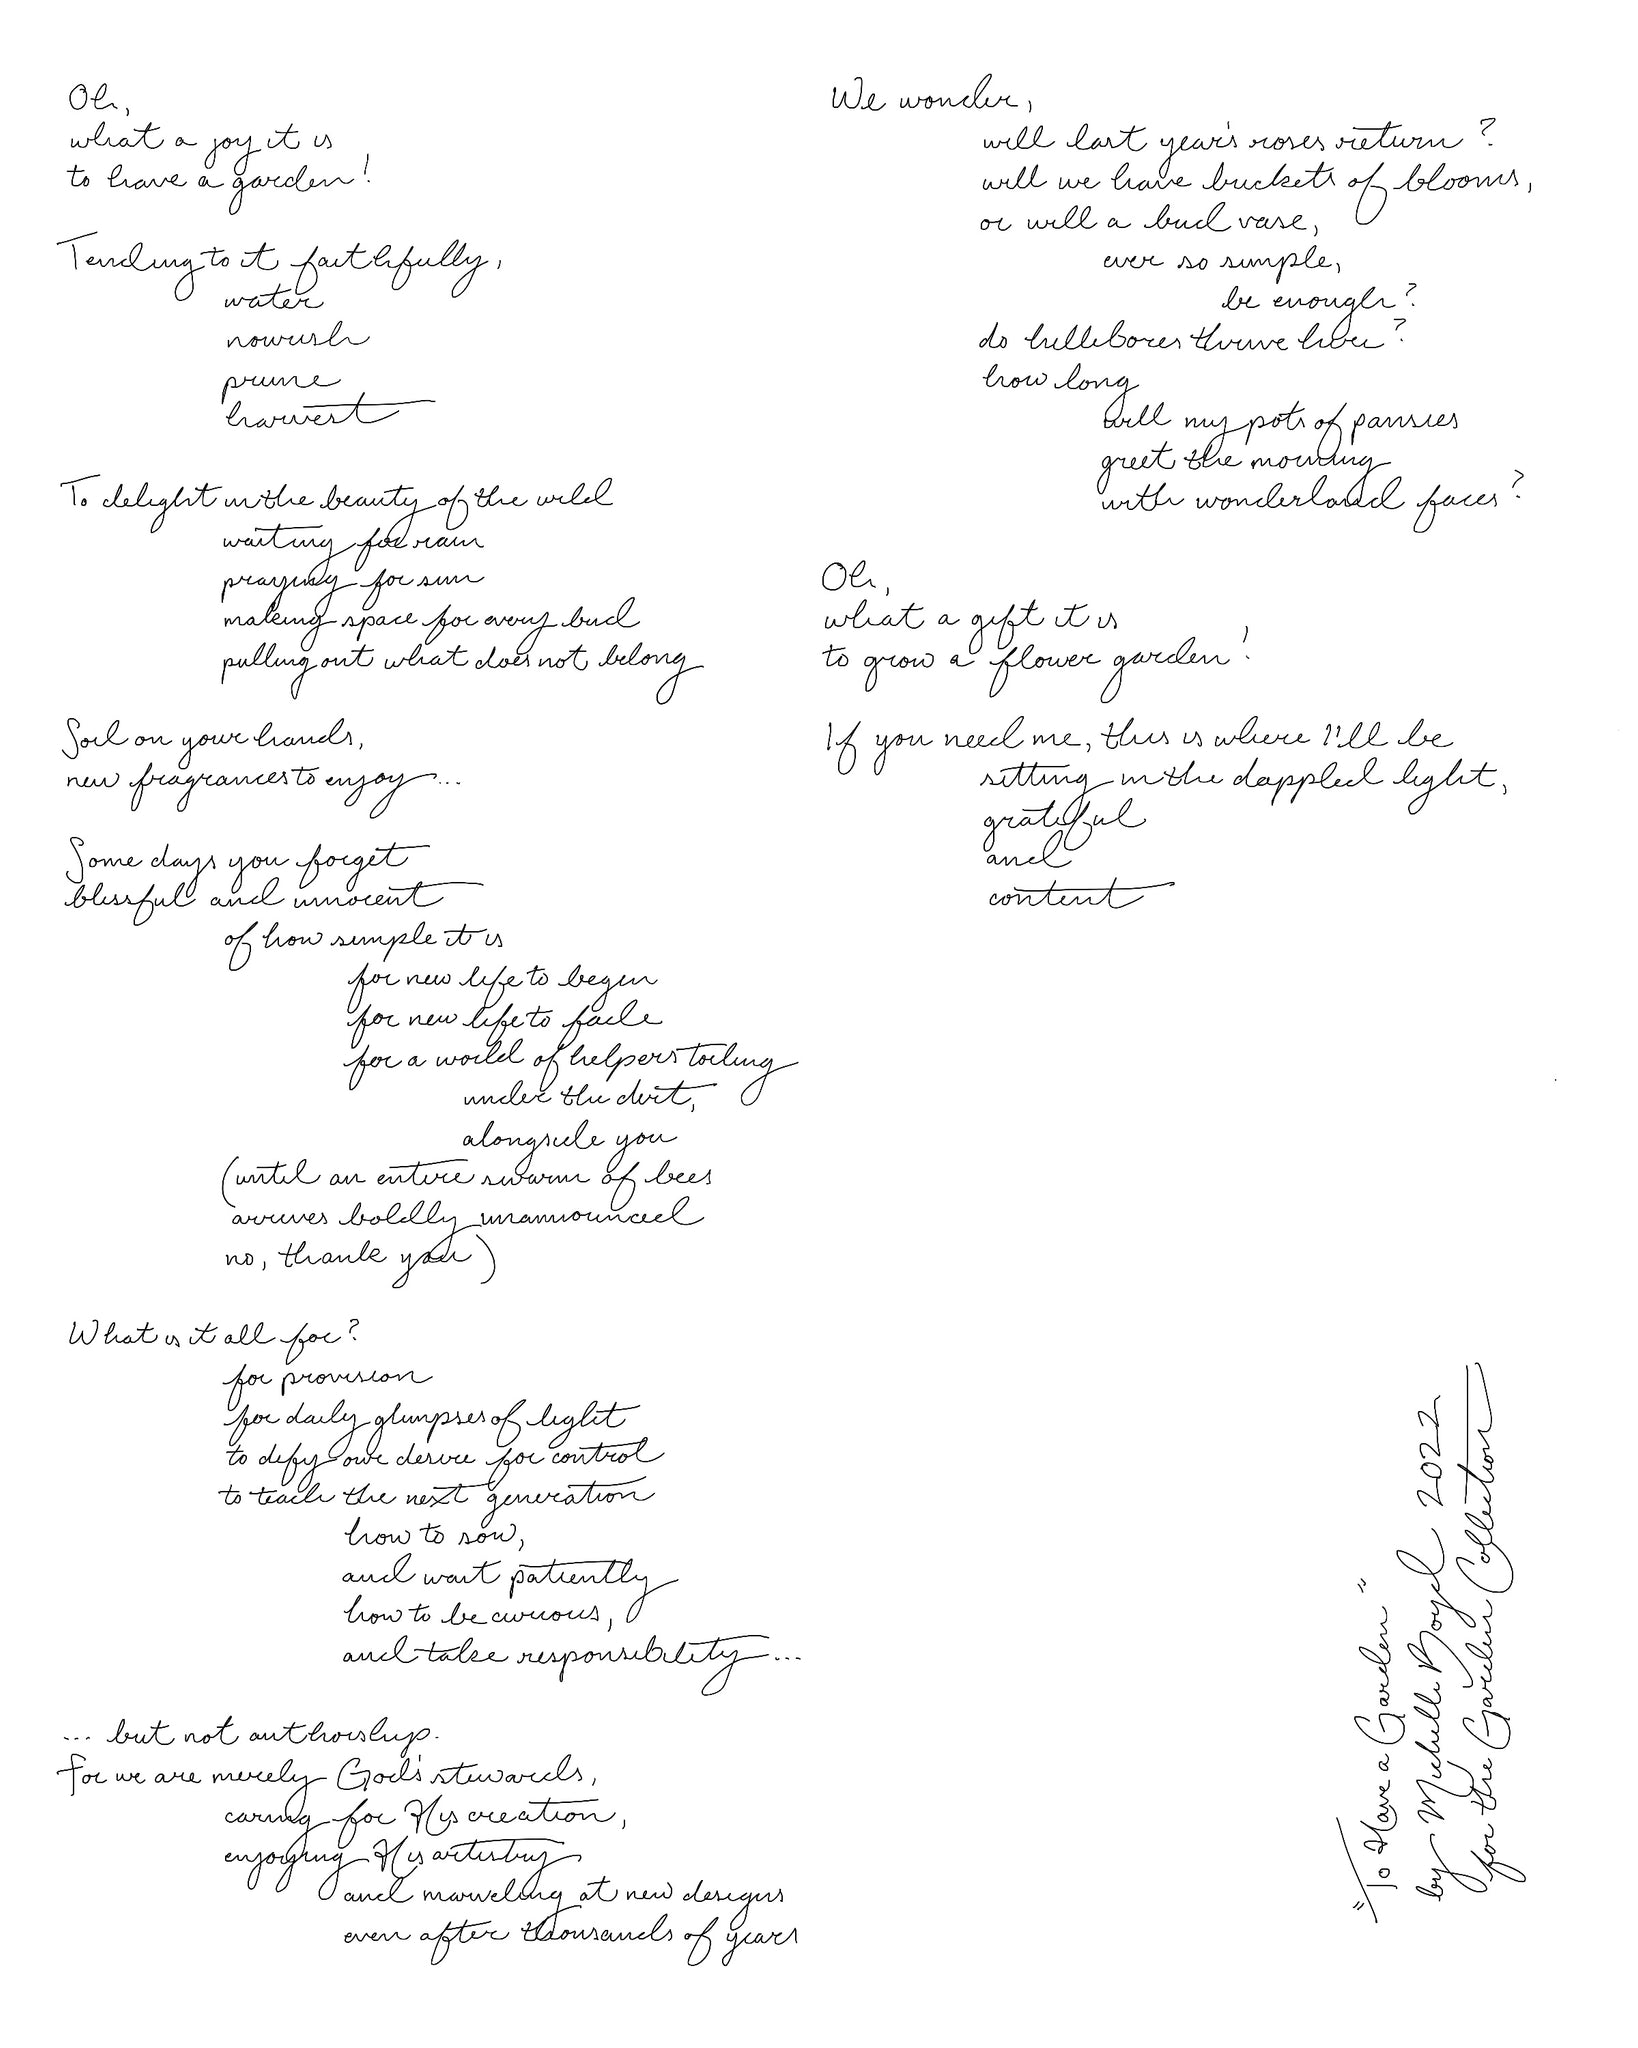 Oh,
what a joy it is
to have a garden!
Tending to it faithfully,
water
nourish
prune
harvest
To delight in the beauty of the wild
waiting for rain
praying for sun
making space for every bud
pulling out what does not belong
Soil on your hands,
new fragrances to enjoy...
Some days you forget
blissful and innocent
of how simple it is
for new life to begin
for new life to fade
for a world of helpers toiling
under the dirt,
alongside you
(until an entire swarm of bees
arrives boldly unannounced
no, thank you)
What is it all for?
for provision
for daily glimpses of light
to defy our desire for control
to teach the next generation
how to sow,
and wait patiently
how to be curious,
and take responsibility...
... but not authorship.
For we are merely God's stewards,
caring for His creation,
enjoying His artistry
and marveling at new designs
even after thousands of years
We wonder,
will last year's roses return?
will we have buckets of blooms,
or will a bud vase,
ever so simple,
be enough?
do hellebores thrive here?
how long
will my pots of pansies
greet the morning
with wonderland faces?
Oh,
what a gift it is
to grow a flower garden!
If you need me, this is where I'll be
sitting in the dappled light,
grateful
and
content
"To Have a Garden"
by Michelle Boyd 2022
for the Garden Collection